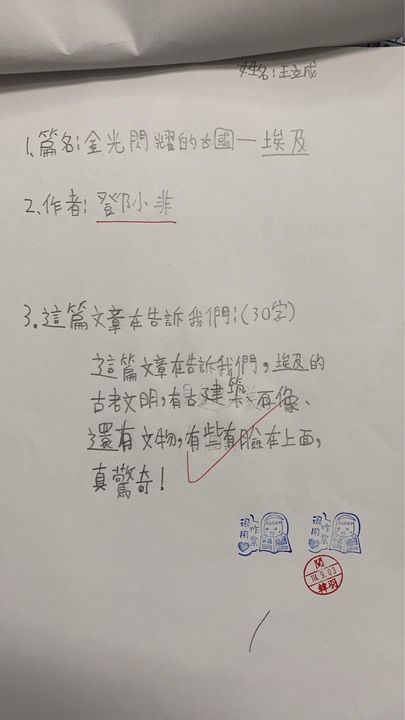 姓名:王立成
1.篇名:金光閃耀的古國—埃及
2.作者:鄧小非
3.這篇文章在告訴我們:(30字)
這篇文章在告訴我們,埃及的
古老文明,有古建築、石像、
還有文物,有些有臉在上面,
真驚奇!
很用心 作業
很用心 作業
閱
111.5.03